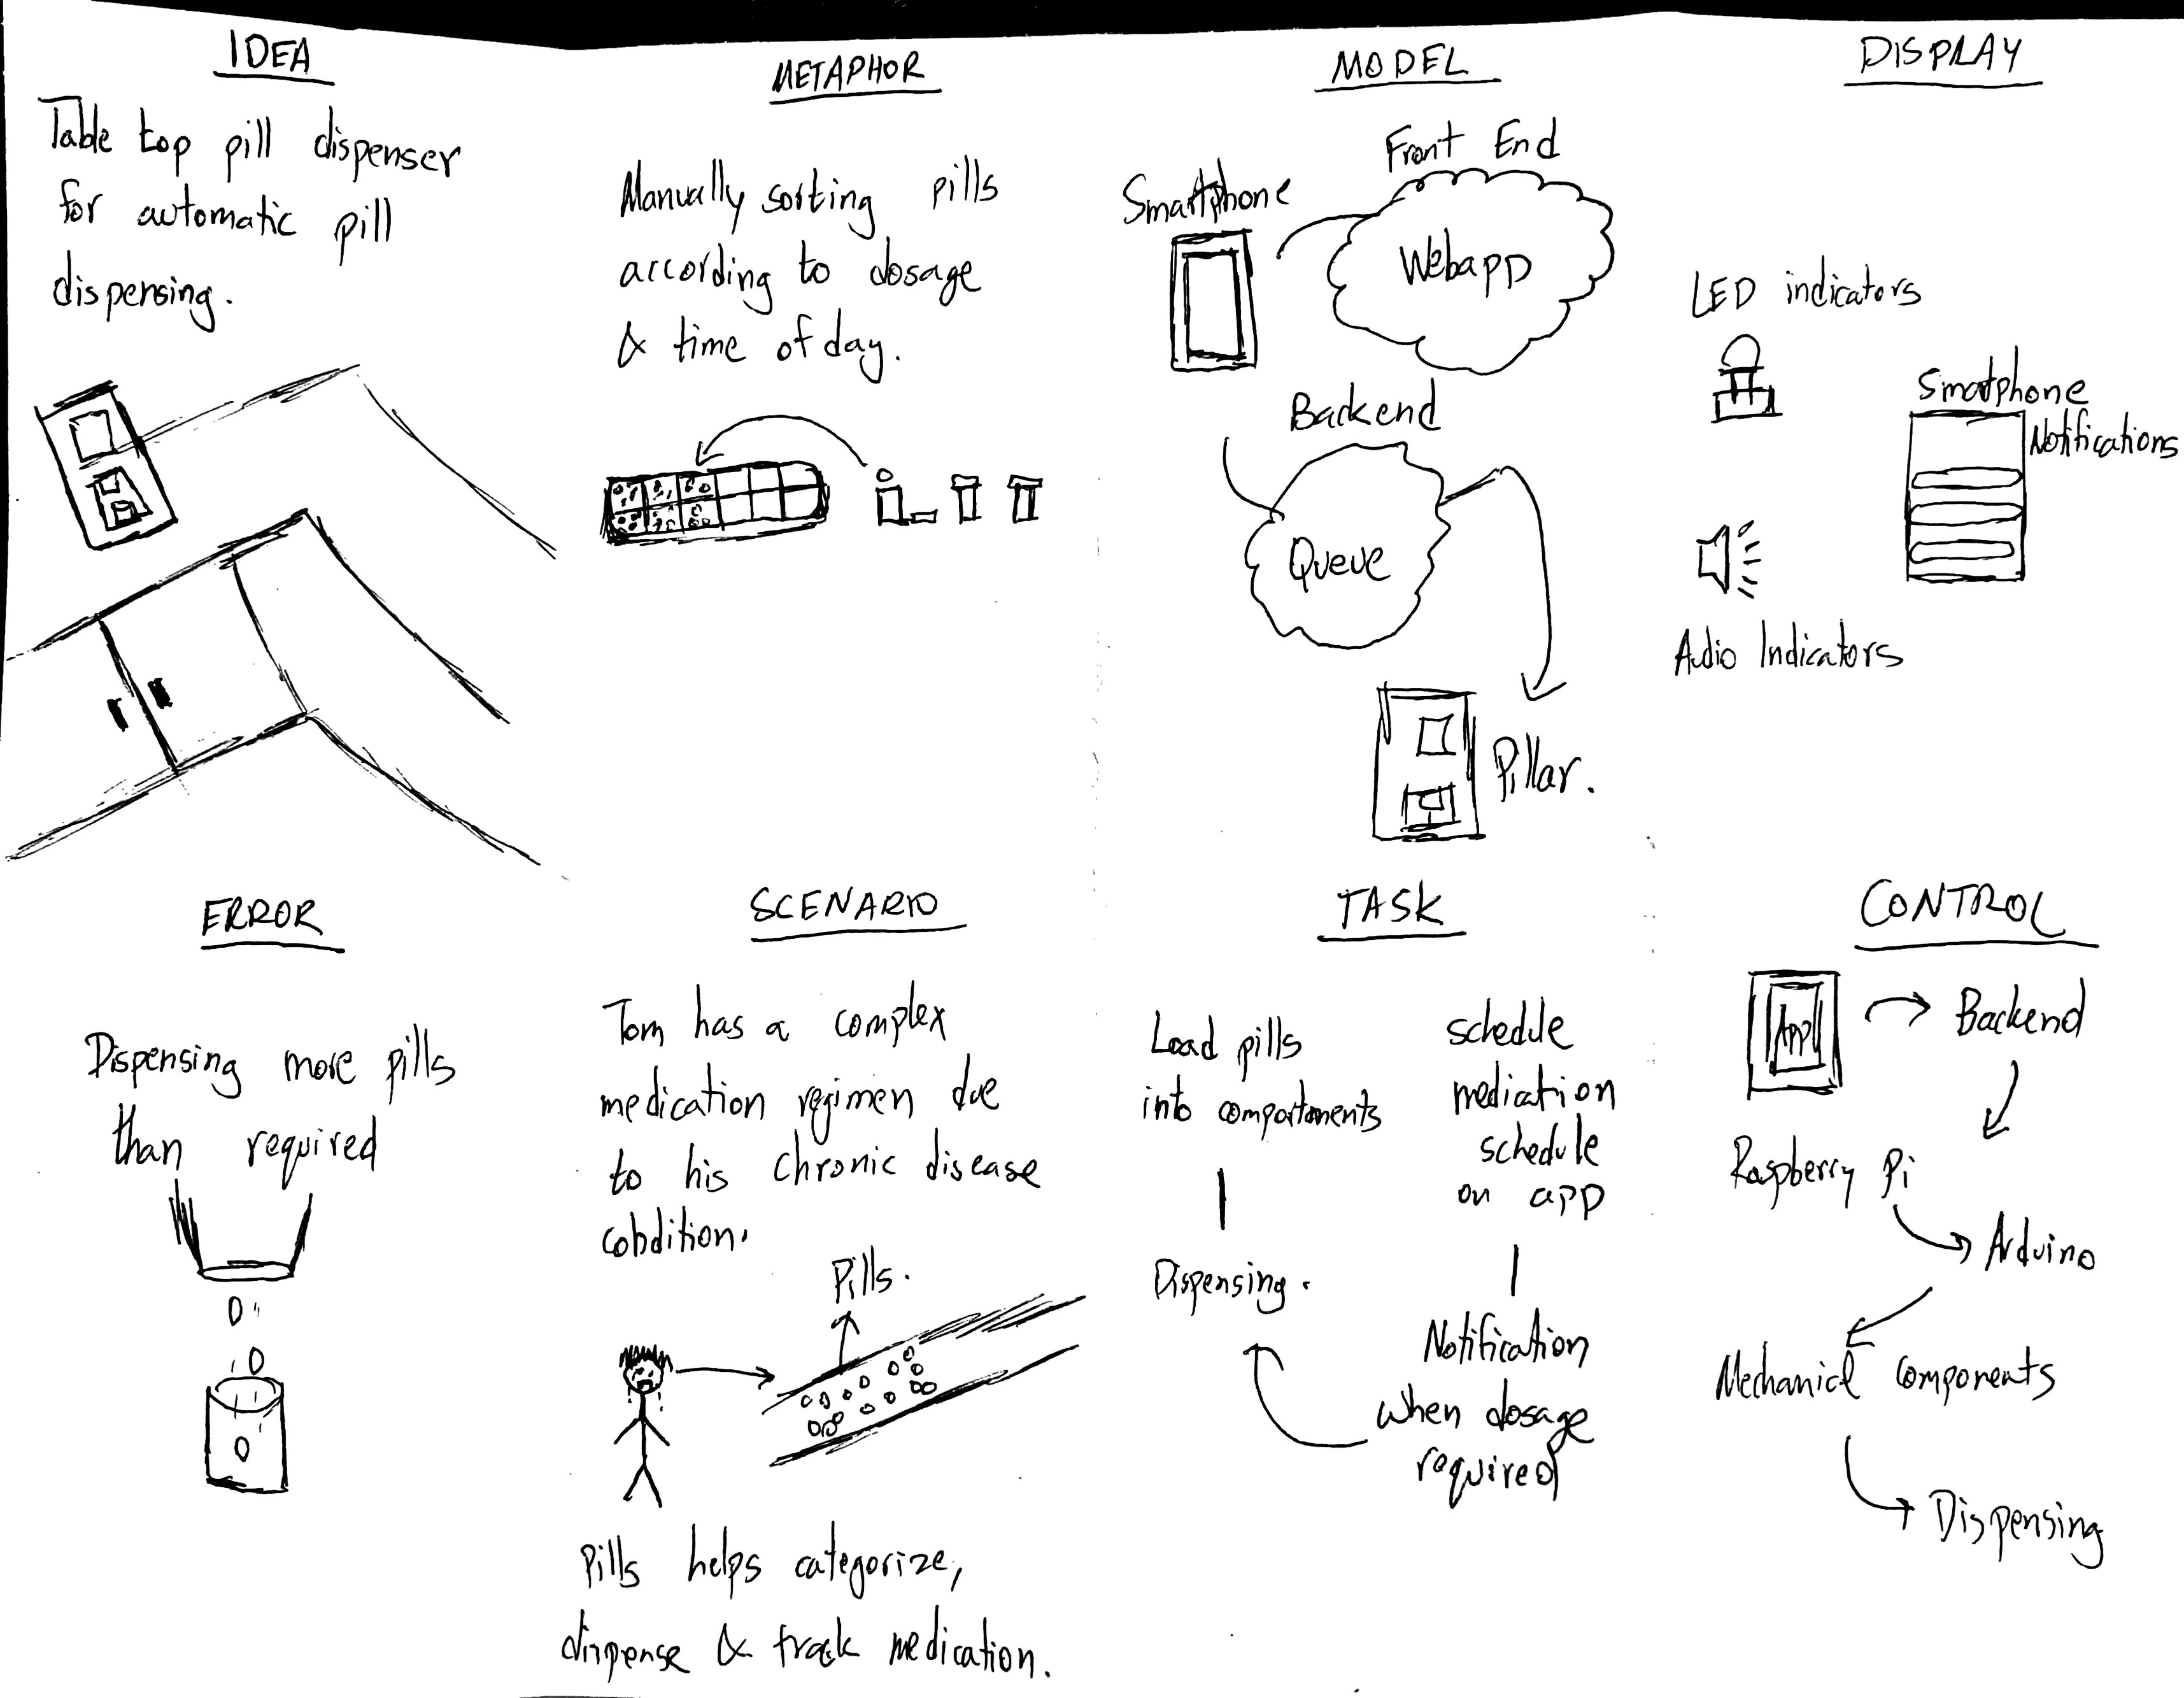 IDEA
Table top pill dispenser
for automatic pill
dispensing.
METAPHOR
Manually sorting pills
according to dosage
& time of day.
MODEL
Front End
Smartphone
Webapp
Backend
Queue
Pillar.
DISPLAY
LED indicators
Smatphone
Notifications
Audio Indicators
ERROR
Dispensing more pills
than required
SCENARIO
Tom has a complex
medication regimen due
to his chronic disease
cobdition.
Pills.
Pills helps categorize,
dispense & track medication.
TASK
Load pills
into compartments
Dispensing.
schedule
medication
schedule
on app
Notification
when dosage
required
CONTROL
App
Backend
Raspberry Pi
Arduino
Mechanicl components
Dispensing